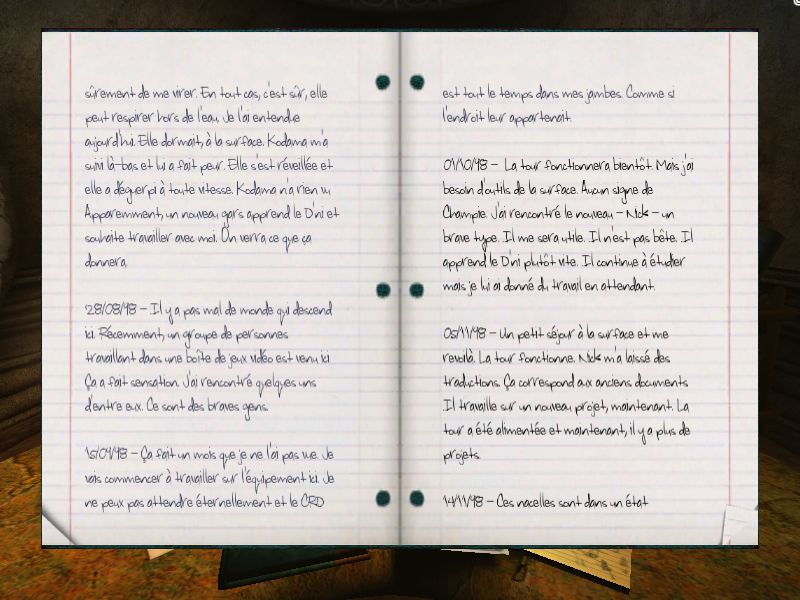 sûrement de me virer. En tout cas, c'est sûr, elle
peut respirer hors de l'eau. Je l'ai entendue
aujourd'hui. Elle dormait, à la surface. Kodama m'a
suivi là-bas et lui a fait peur. Elle s'est réveillée et
elle a déguerpi à toute vitesse. Kodama n'a rien vu
Apparemment, un nouveau gars apprend le D'ni et
souhaite travailler avec moi. On verra ce que ça
donnera.
28/08/98 - Il y a pas mal de monde qui descend
ici. Récemment, un groupe de personnes
travaillant dans une boîte de jeux vidéo est venu ici
Ça a fait sensation. J'ai rencontré quelques uns
d'entre eux. Ce sont des braves gens.
15/09/98 - Ça fait un mois que je ne l'ai pas vue. Je
vais commencer à travailler sur l'équipement ici. Je
ne peux pas attendre éternellement et le CRD
est tout le temps dans mes jambes. Comme si
l'endroit leur appartenait.
01/10/98 - La tour fonctionnera bientôt. Mais j'ai
besoin d'outils de la surface. Aucun signe de
Champie. J'ai rencontré le nouveau - Nick - un
brave type. Il me sera utile. Il n'est pas bête. Il
apprend le D'ni plutôt vite. Il continue à étudier
mais je lui ai donné du travail en attendant.
05/11/98 - Un petit séjour à la surface et me
revoilà. La tour fonctionne. Nick m'a laissé des
traductions. Ça correspond aux anciens documents
Il travaille sur un nouveau projet, maintenant. La
tour a été alimentée et maintenant, il y a plus de
projets.
14/11/98 - Ces nacelles sont dans un état